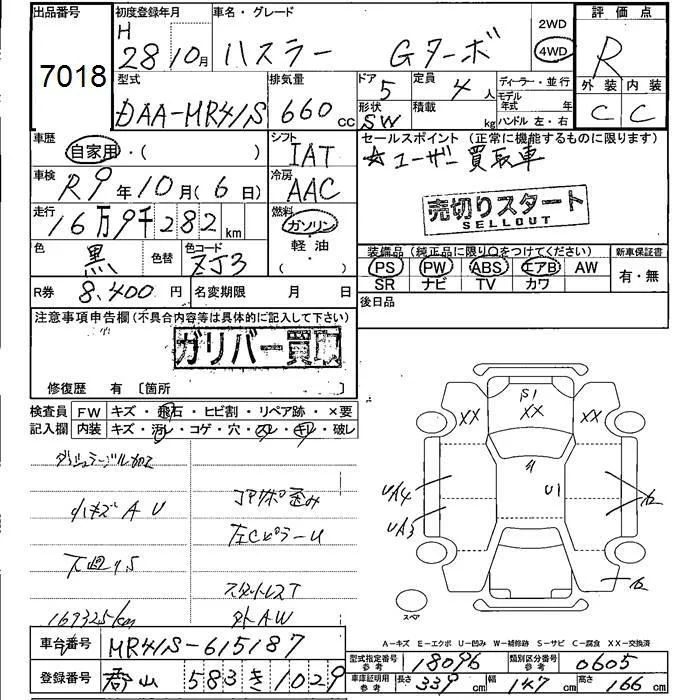 出品番号 初度登録年月 車名・グレード 2WD 評価点
7018 H 28 10月 ハスラー Gターボ 4WD R
型式 排気量 ドア 定員 ディーラー・並行 外装 内装
DAA-MR41S 660 cc 5 4人 モデル年式 年 C C
形状 SW 積載 kg ハンドル 左・右
車歴 自家用・( ) シフト IAT セールスポイント (正常に機能するものに限ります)
☆ユーザー買取車
車検 R9年10月(6日) 冷房 AAC
売切りスタート
SELLOUT
走行 16万9千282km 燃料 ガソリン
軽油
( )
色 黒 色替 色コード ZJ3
装備品 (純正品に限り○をつけてください) 新車保証書
PS PW ABS エアB AW 有・無
SR ナビ TV カワ
R券 8,400円 名変期限 月 日 後日品
注意事項申告欄(不具合内容等は具体的に記入して下さい)
ガリバー買取
修復歴 有 〔箇所 〕
検査員 FW キズ・飛石・ヒビ割・リペア跡・×要
記入欄 内装 キズ・汚レ・コゲ・穴・スレ・キレ・破レ
小キズAU
コアサポ歪み
左CピラーU
下廻りS
スタットレスT
169325km 外AW
S1
XX XX XX
UA4 U1
UA3
スペア
A-キズ E-エクボ U-凹み W-補修跡 S-サビ C-腐食 XX-交換済
車台番号 MR41S-615187 型式指定番号 参考 18096 類別区分番号 参考 0605
登録番号 郡山 583 き 1029 車庫証明用 参考 長さ 339cm 幅 147cm 高さ 166cm